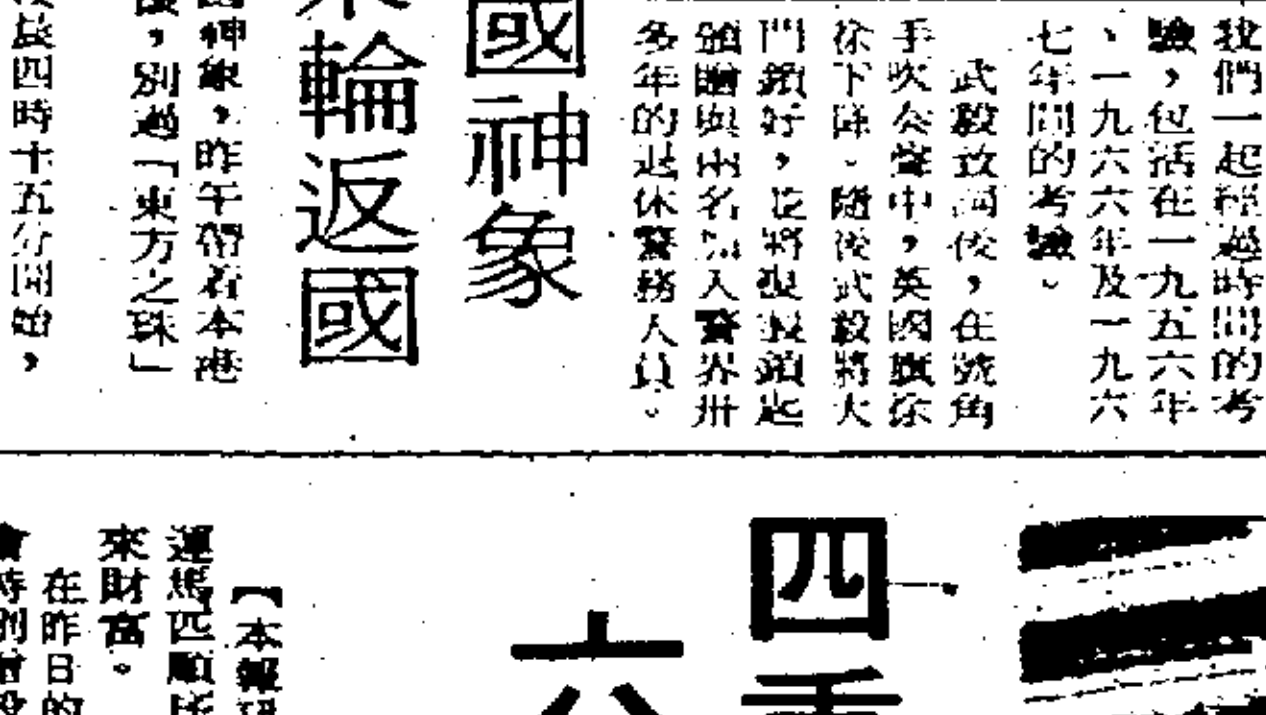 我們一起經過時間的考
驗，包活在一九五六年
、一九六六年及一九六
七年間的考驗。
武毅致詞後，在號角
手吹奏聲中，英國旗徐
徐下降。隨後武毅將大
門鎖好，並將復製鎖匙
頒贈與兩名加入警界卅
多年的退休警務人員。
國神象
輪返國
神象，昨午帶着本港
，別過「東方之珠」
四時十五分開始，
四重
六
【本報
運馬匹順
來財富。
在昨日的
會特別增設